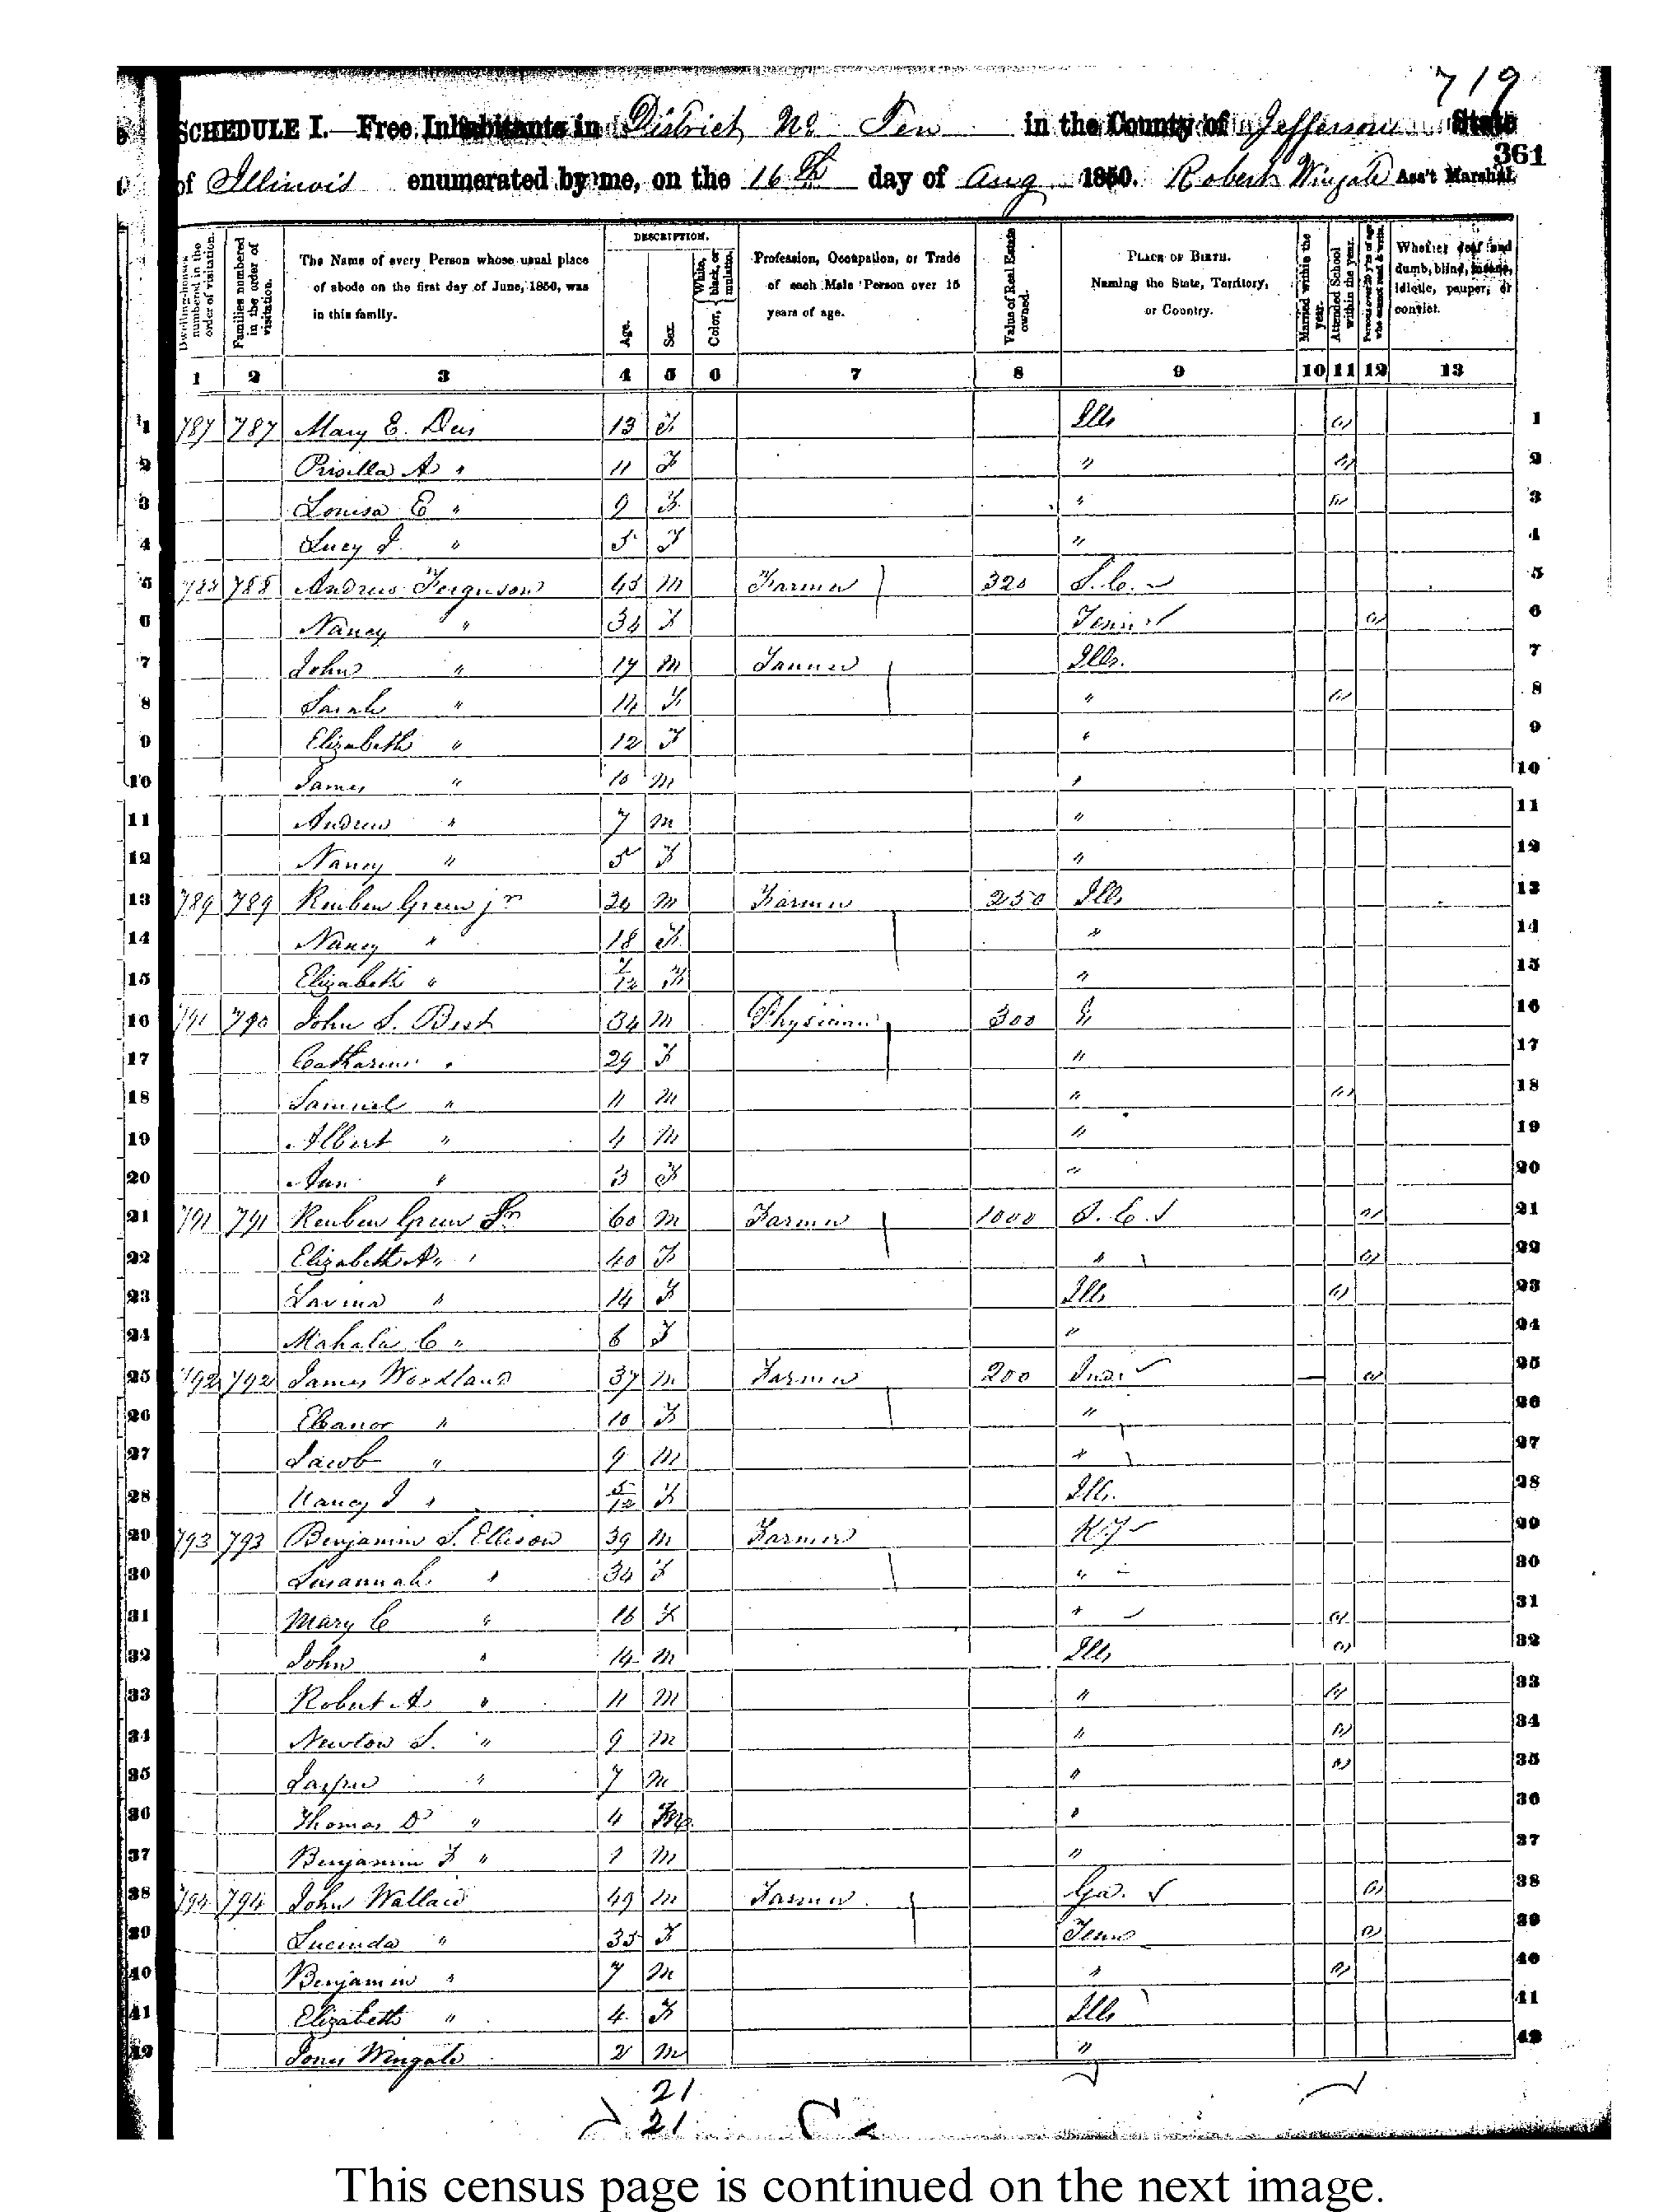 719
SCHEDULE I.—Free Inhabitants in District No Ten in the County of Jefferson State
361
of Illinois enumerated by me, on the 16th day of Aug 1850. Robert Wingate Ass't Marshal.
Dwelling-houses numbered in the order of visitation.
Families numbered in the order of visitation.
The Name of every Person whose usual place of abode on the first day of June, 1850, was in this family.
DESCRIPTION.
Age.
Sex.
Color, White, black, or mulatto.
Profession, Occupation, or Trade of each Male Person over 15 years of age.
Value of Real Estate owned.
PLACE OF BIRTH. Naming the State, Territory, or Country.
Married within the year.
Attended School within the year.
Persons over 20 y'rs of age who cannot read & write.
Whether deaf and dumb, blind, insane, idiotic, pauper, or convict.
1 2 3 4 5 6 7 8 9 10 11 12 13
1 787 787 Mary E. 13 F Ills 1
2 Prisilla A " 11 F " 2
3 Louisa E " 9 F " 3
4 Lucy J. " 5 F " 4
5 788 788 Andrew Ferguson 45 M Farmer 320 S.C. 5
6 Nancy " 34 F Tenn 6
7 John " 17 M Ills. 7
8 Sarah " 14 F " 8
9 Elizabeth " 12 F " 9
10 James " 10 M " 10
11 Andrew " 7 M " 11
12 Nancy " 5 F " 12
13 789 789 Reuben Green jr 24 M Farmer 250 Ills 13
14 Nancy " 18 F " 14
15 Elizabeth " 7/12 F " 15
16 791 790 John S. Best 34 M Physician 300 16
17 Catharine " 29 F " 17
18 Samuel " 11 M " 18
19 Albert " 4 M " 19
20 Ann " 3 F " 20
21 791 791 Reuben Green Sr 60 M Farmer 1000 S.C. 21
22 Elizabeth A " 40 F " 22
23 Lavina " 14 F Ills 23
24 Mahala C " 6 F " 24
25 792 792 James 37 M Farmer 200 Inda 25
26 Eleanor " 10 F " 26
27 Jacob " 9 M " 27
28 Nancy J " 5/12 F Ills. 28
29 793 793 Benjamin S. Ellison 39 M Farmer Ky 29
30 Susannah " 34 F " 30
31 Mary C " 16 F " 31
32 John " 14 M Ills 32
33 Robert A " 11 M " 33
34 Newton S. " 9 M " 34
35 Jasper " 7 M " 35
36 Thomas D " 4 M " 36
37 Benjamin F " 1 M " 37
38 794 794 John Wallace 49 M Farmer Ga. 38
39 Lucinda " 35 F Tenn 39
40 Benjamin " 7 M " 40
41 Elizabeth " 4 F Ills 41
42 Jones Wingate 2 M " 42
21
21
This census page is continued on the next image.